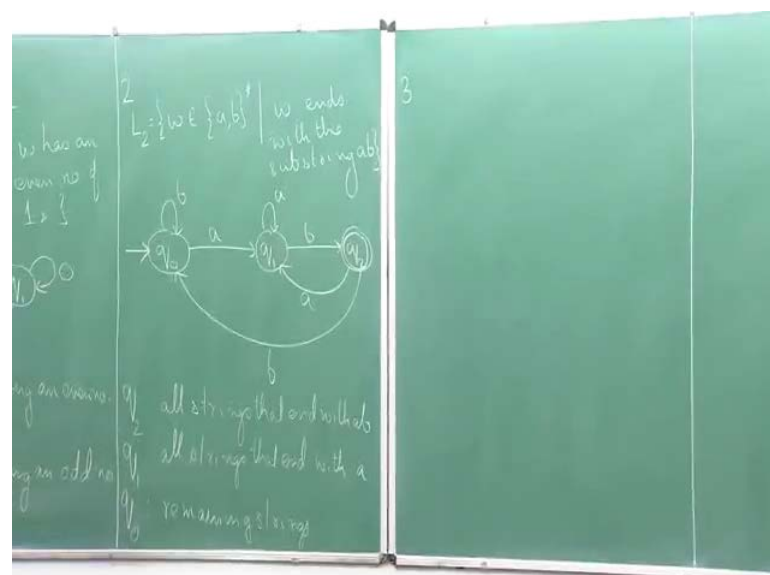 w has an
even no of
1s}
q₁ 0
ing an even no.
ing an odd no
2
L₂={w ∈ {a,b}* | w ends
with the
substring ab}
b a
q₀ a q₁ b q₂
a
b
q₂ all strings that end with ab
q₁ all strings that end with a
q₀: remaining strings
3